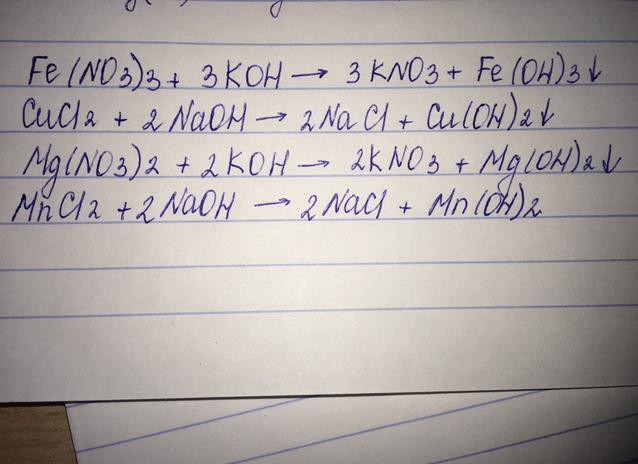 Fe(NO3)3 + 3KOH → 3KNO3 + Fe(OH)3↓
CuCl2 + 2NaOH → 2NaCl + Cu(OH)2↓
Mg(NO3)2 + 2KOH → 2KNO3 + Mg(OH)2↓
MnCl2 + 2NaOH → 2NaCl + Mn(OH)2